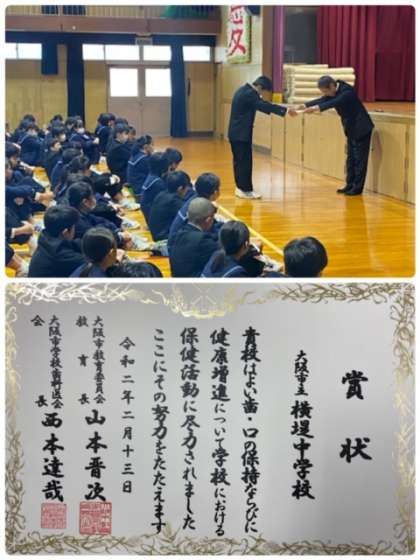 賞状
大阪市立 横堤中学校
貴校はよい歯・口の保持ならびに
健康増進について学校における
保健活動に尽力されました
ここにその努力をたたえます
令和二年二月十三日
大阪市教育委員会
教育長 山本晋次
大阪市学校歯科医会
会長 西本達哉